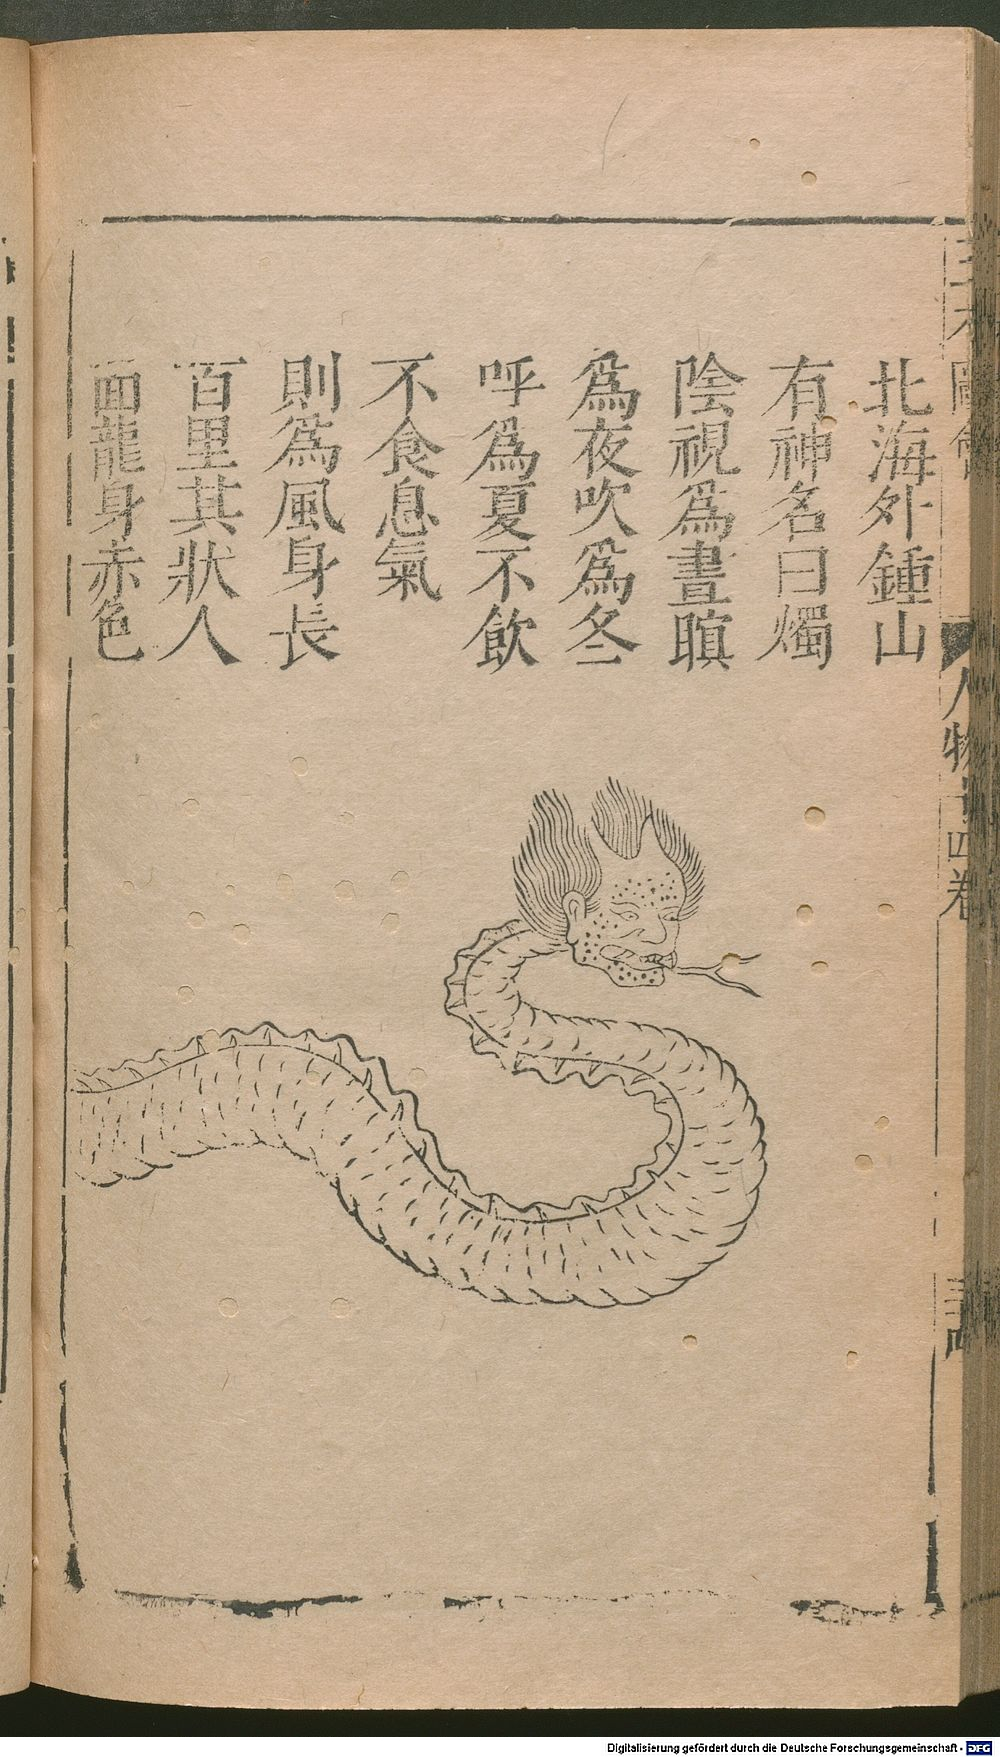 北海外鍾山
有神名曰燭
陰視為晝瞑
為夜吹為冬
呼為夏不飲
不食息氣
則為風身長
百里其狀人
面龍身赤色
人物
四卷
Digitalisierung gefördert durch die Deutsche Forschungsgemeinschaft - DFG